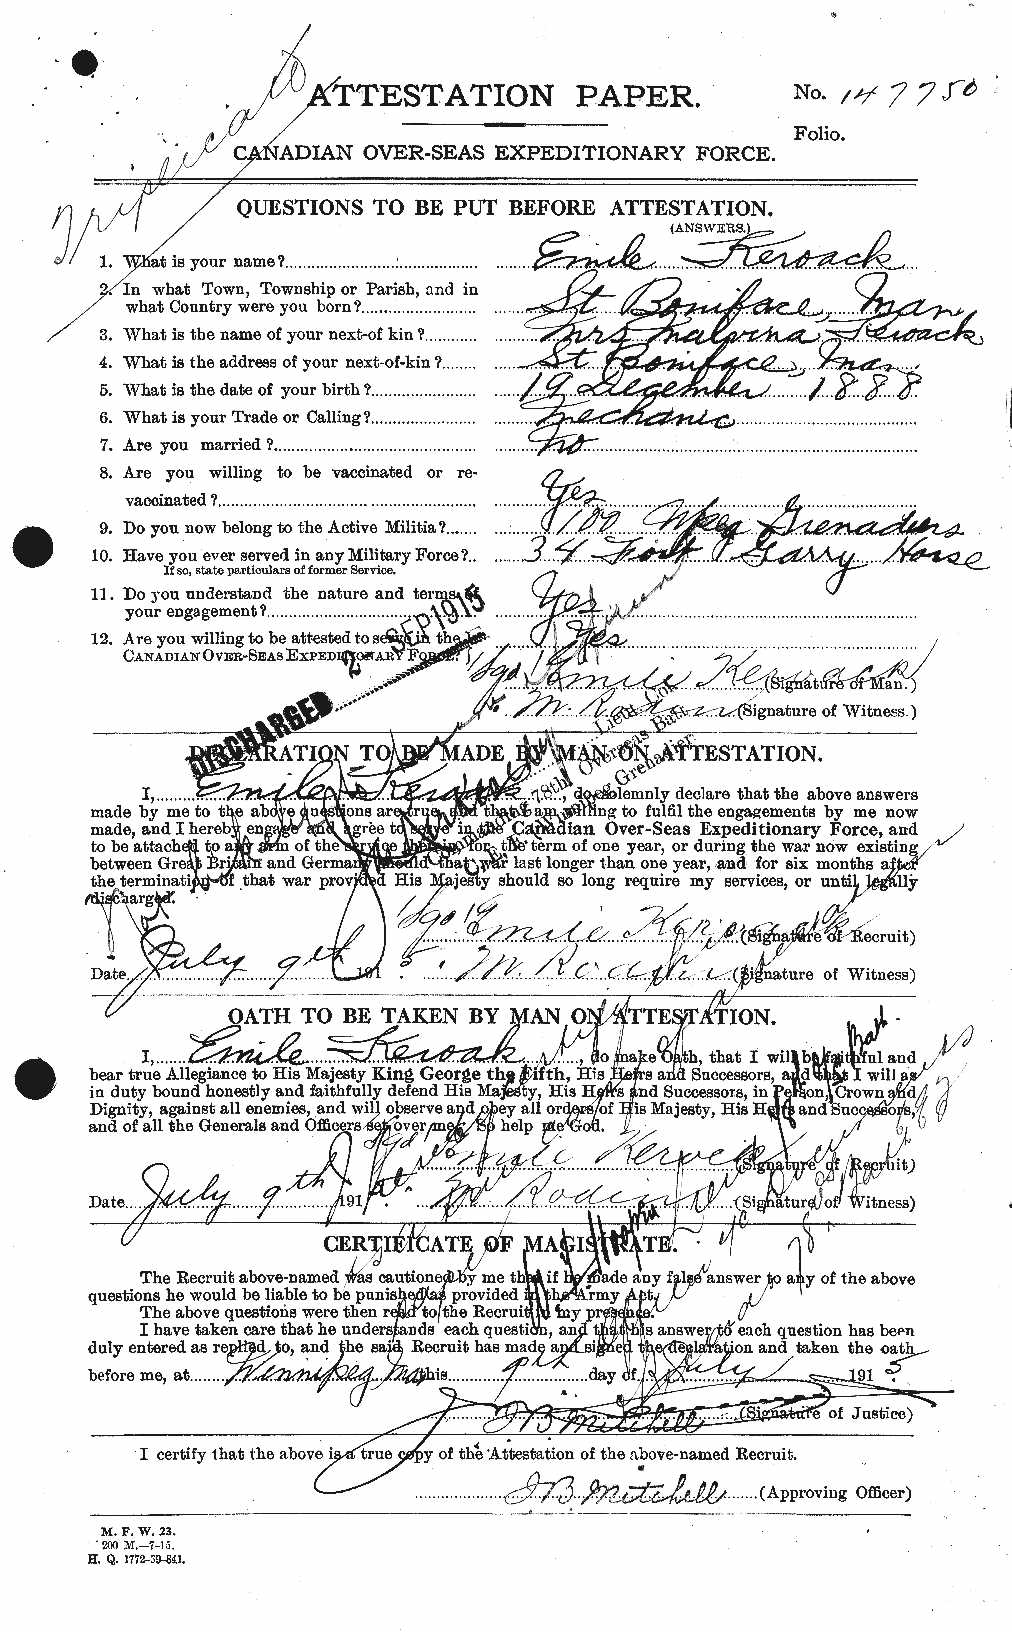 Triplicate
ATTESTATION PAPER.
No. 147750
Folio.
CANADIAN OVER-SEAS EXPEDITIONARY FORCE.
QUESTIONS TO BE PUT BEFORE ATTESTATION.
(ANSWERS.)
1. What is your name? Emile Keroack
2. In what Town, Township or Parish, and in
what Country were you born? St Boniface, Man
3. What is the name of your next-of kin? Mrs Malvina Keroack
4. What is the address of your next-of-kin? St Boniface, Man.
5. What is the date of your birth? 19 December 1888
6. What is your Trade or Calling? Mechanic
7. Are you married? No
8. Are you willing to be vaccinated or re-
vaccinated? Yes
9. Do you now belong to the Active Militia? 100 Wpeg Grenadiers
10. Have you ever served in any Military Force? 34 Fort Garry Horse
If so, state particulars of former Service.
11. Do you understand the nature and terms of
your engagement? Yes
12. Are you willing to be attested to serve in the Yes
CANADIAN OVER-SEAS EXPEDITIONARY FORCE?
2 SEP 1915
DISCHARGED
Sgd Emile Keroack (Signature of Man.)
M. Rodin (Signature of Witness.)
DECLARATION TO BE MADE BY MAN ON ATTESTATION.
I, Emile Keroack, do solemnly declare that the above answers
made by me to the above questions are true, and that I am willing to fulfil the engagements by me now
made, and I hereby engage and agree to serve in the Canadian Over-Seas Expeditionary Force, and
to be attached to any arm of the service therein, for the term of one year, or during the war now existing
between Great Britain and Germany should that war last longer than one year, and for six months after
the termination of that war provided His Majesty should so long require my services, or until legally
discharged.
Sgd Emile Keroack (Signature of Recruit)
Date July 9th 1915. M. Rodin (Signature of Witness)
OATH TO BE TAKEN BY MAN ON ATTESTATION.
I, Emile Keroak, do make Oath, that I will be faithful and
bear true Allegiance to His Majesty King George the Fifth, His Heirs and Successors, and that I will as
in duty bound honestly and faithfully defend His Majesty, His Heirs and Successors, in Person, Crown and
Dignity, against all enemies, and will observe and obey all orders of His Majesty, His Heirs and Successors,
and of all the Generals and Officers set over me. So help me God.
Sgd Emile Keroack (Signature of Recruit)
Date July 9th 191 M. Rodin (Signature of Witness)
CERTIFICATE OF MAGISTRATE.
The Recruit above-named was cautioned by me that if he made any false answer to any of the above
questions he would be liable to be punished as provided in the Army Act.
The above questions were then read to the Recruit in my presence.
I have taken care that he understands each question, and that his answer to each question has been
duly entered as replied to, and the said Recruit has made and signed the declaration and taken the oath
before me, at Winnipeg Man this 9th day of July 1915.
J B Mitchell (Signature of Justice)
I certify that the above is a true copy of the Attestation of the above-named Recruit.
J B Mitchell (Approving Officer)
M. F. W. 23.
200 M.—7-15.
H. Q. 1772-39-841.